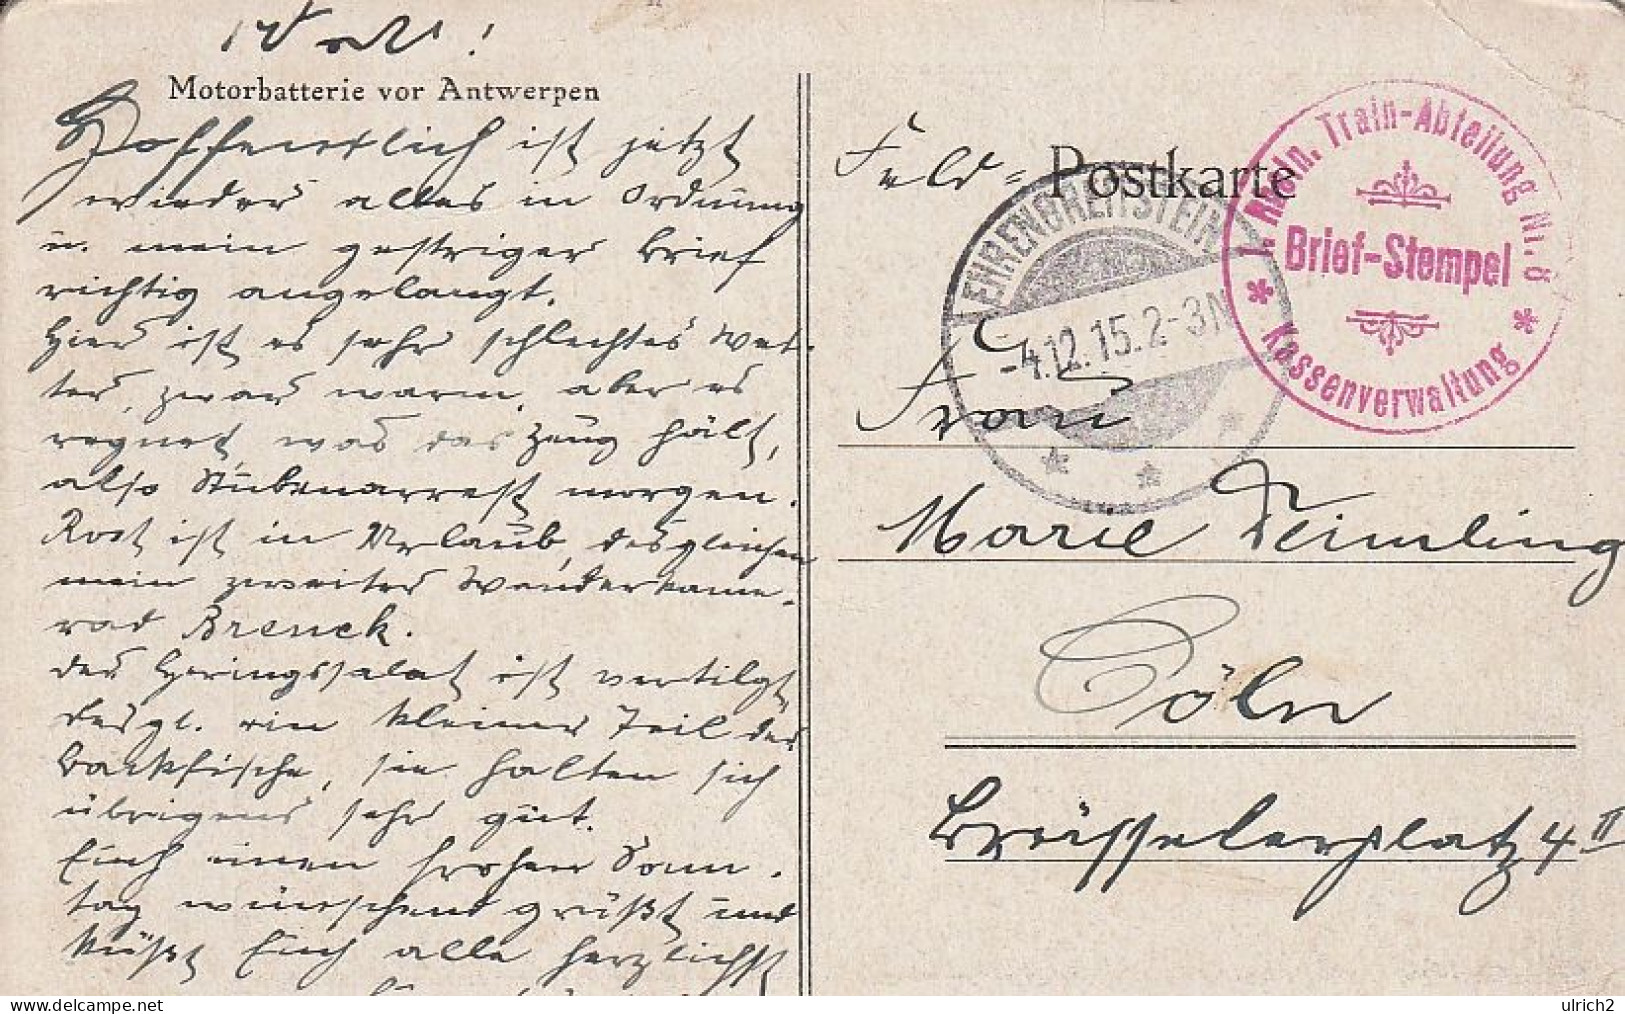 Motorbatterie vor Antwerpen
Hoffentlich ist jetzt
wieder alles in Ordnung
u. mein gestriger Brief
richtig angelangt.
Hier ist es sehr schlechtes Wet-
ter, zwar warm, aber es
regnet, was das Zeug hält,
also Stubenarrest morgen.
Rost ist in Urlaub, desgleichen
mein zweiter Wanderkame-
rad Brenck.
Der Heringssalat ist vertilgt,
desgl. ein kleiner Teil der
Backfische, sie halten sich
übrigens sehr gut.
Euch einen frohen Sonn-
tag wünschend grüßt und
küßt Euch alle herzlichst
Feld-
Postkarte
EHRENBREITSTEIN
-4.12.15.2-3N
I. Rhein. Train-Abteilung Nr. 8
Brief-Stempel
* Kassenverwaltung *
Frau
Marie Deimling
Cöln
Brüsselerplatz 4 II
delcampe.net
ulrich2